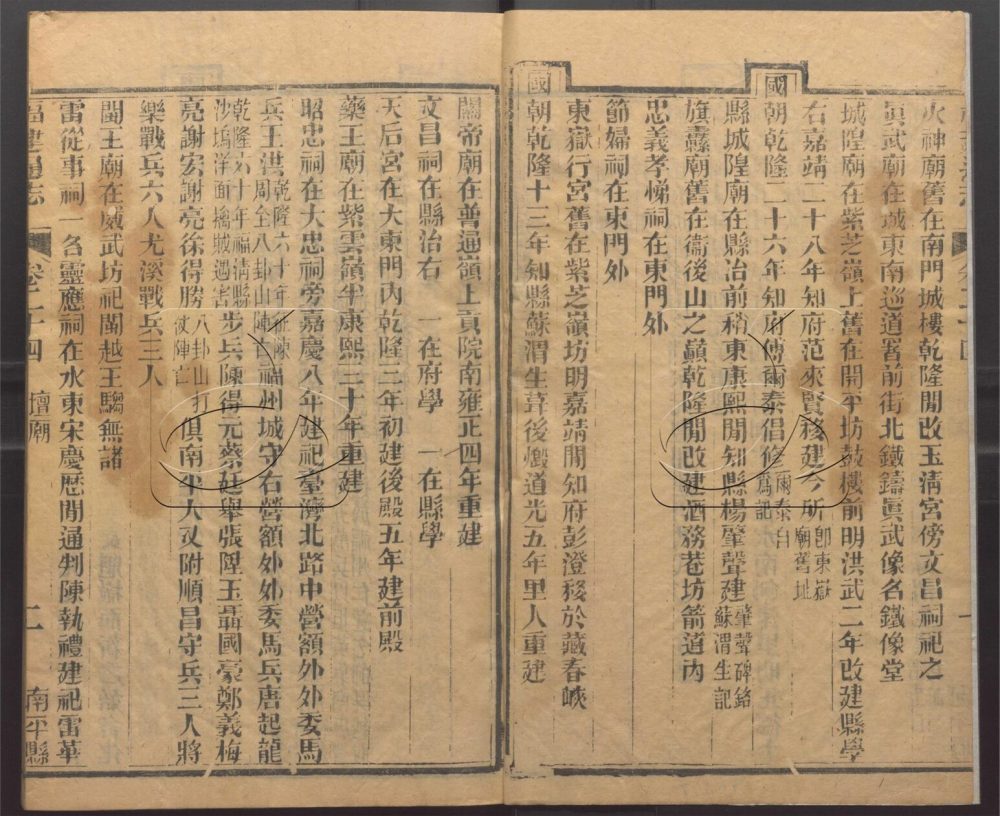 火神廟舊在南門城樓乾隆閒改玉淸宮傍文昌祠祀之
眞武廟在城東南巡道署前街北鐵鑄眞武像名鐵像堂
城隍廟在紫芝嶺上舊在開平坊鼓樓前明洪武二年改建縣學
右嘉靖二十八年知府范來賢移建今所卽東嶽廟舊址
國朝乾隆二十六年知府傅爾泰倡修爾泰自爲記
縣城隍廟在縣治前稍東康熙閒知縣楊肇聲建肇聲碑銘蘇渭生記
旗纛廟舊在衞後山之巓乾隆閒改建酒務巷坊箭道內
忠義孝悌祠在東門外
節婦祠在東門外
東嶽行宮舊在紫芝嶺坊明嘉靖閒知府彭澄移於藏春峽
國朝乾隆十三年知縣蘇渭生葺後燬道光五年里人重建
關帝廟在普通嶺上貢院南雍正四年重建
文昌祠在縣治右 一在府學 一在縣學
天后宮在大東門內乾隆二年初建後殿五年建前殿
藥王廟在紫雲嶺半康熙二十年重建
昭忠祠在大忠祠旁嘉慶八年建祀臺灣北路中營額外外委馬
兵王洪乾隆六十年征陳周全八卦山陣亡福州城守右營額外外委馬兵唐起龍
乾隆六十年福淸縣沙塢洋面擒賊遇害步兵陳得元蔡廷舉張陞玉聶國豪鄭義梅
亮謝宏謝亮徐得勝八卦山打仗陣亡俱南平人又附順昌守兵三人將
樂戰兵六人尤溪戰兵三人
閩王廟在威武坊祀閩越王騶無諸
雷從事祠一名靈應祠在水東宋慶歷閒通判陳執禮建祀雷華
福建通志 卷二十四 壇廟 二 南平縣